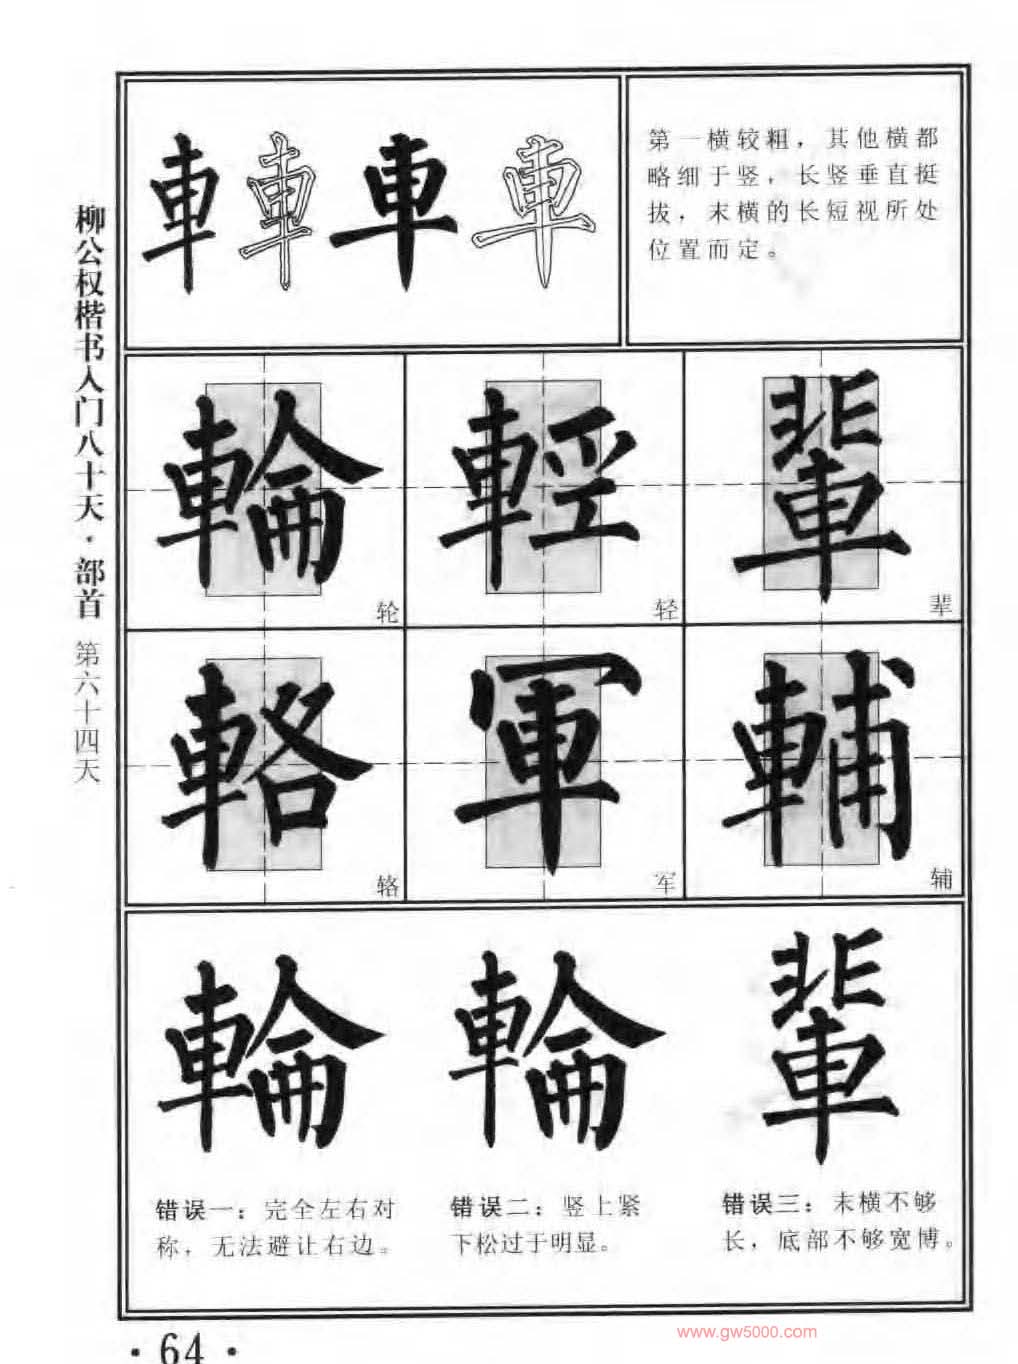 柳公权楷书入门八十天·部首 第六十四天
車 車 車 車
第一横较粗，其他横都
略细于竖，长竖垂直挺
拔，末横的长短视所处
位置而定。
輪 輕 輩
轮 轻 辈
輅 軍 輔
辂 军 辅
輪 輪 輩
错误一：完全左右对
称，无法避让右边。
错误二：竖上紧
下松过于明显。
错误三：末横不够
长，底部不够宽博。
www.gw5000.com
·64·